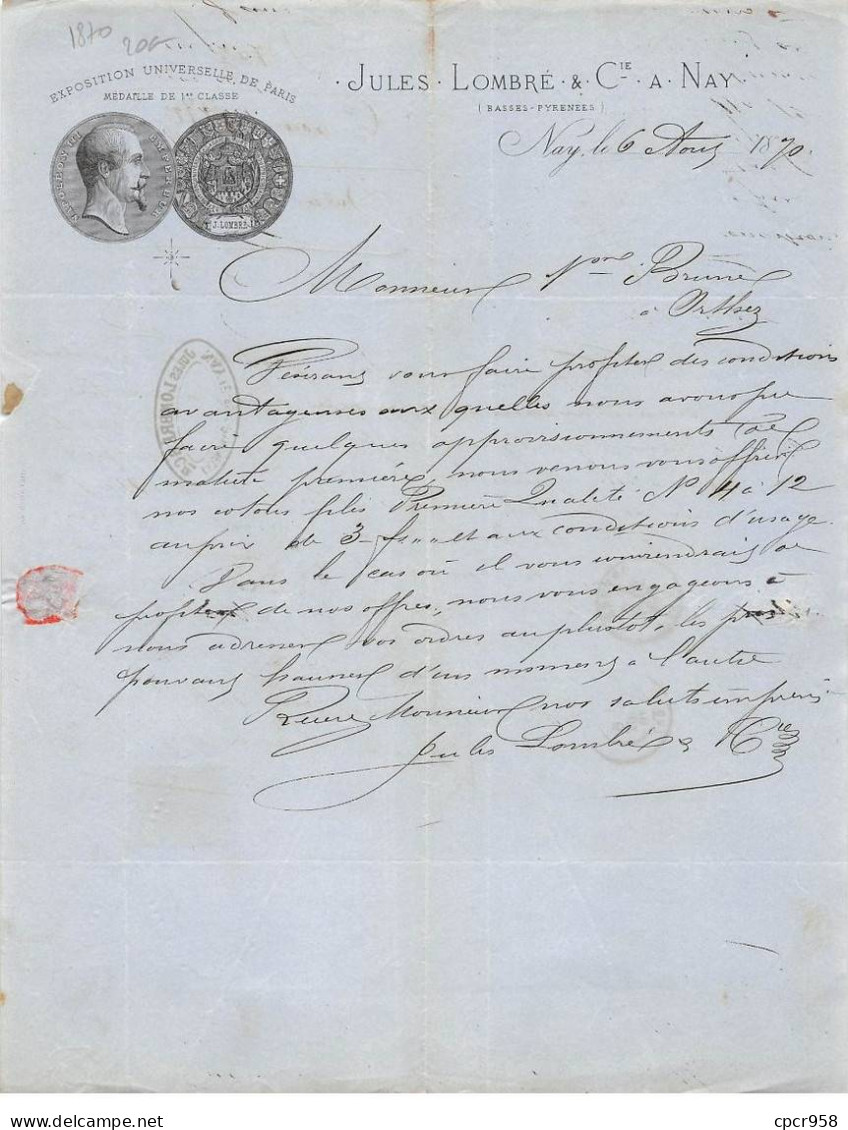 1870
20€
EXPOSITION UNIVERSELLE DE PARIS
MÉDAILLE DE 1re CLASSE
NAPOLEON III EMPEREUR
J. LOMBRÉ
JULES LOMBRÉ & CIE A NAY
(BASSES-PYRENEES)
Nay, le 6 Août 1870.
Monsieur Brunè
à Orthez
Désirant vous faire profiter des conditions
avantageuses aux quelles nous avons pu
faire quelques approvisionnements de
matiére première, nous venons vous offrir
nos cotons filés Première Qualité No 4 à 12
au prix de 3 f et aux conditions d'usage.
Dans le cas où il vous conviendrait de
profiter de nos offres, nous vous engageons à
nous adresser vos ordres au plustot, les prix
pouvant hausser d'un moment à l'autre
Recevez Monsieur nos salutations
Jules Lombré & Cie
cpcr958